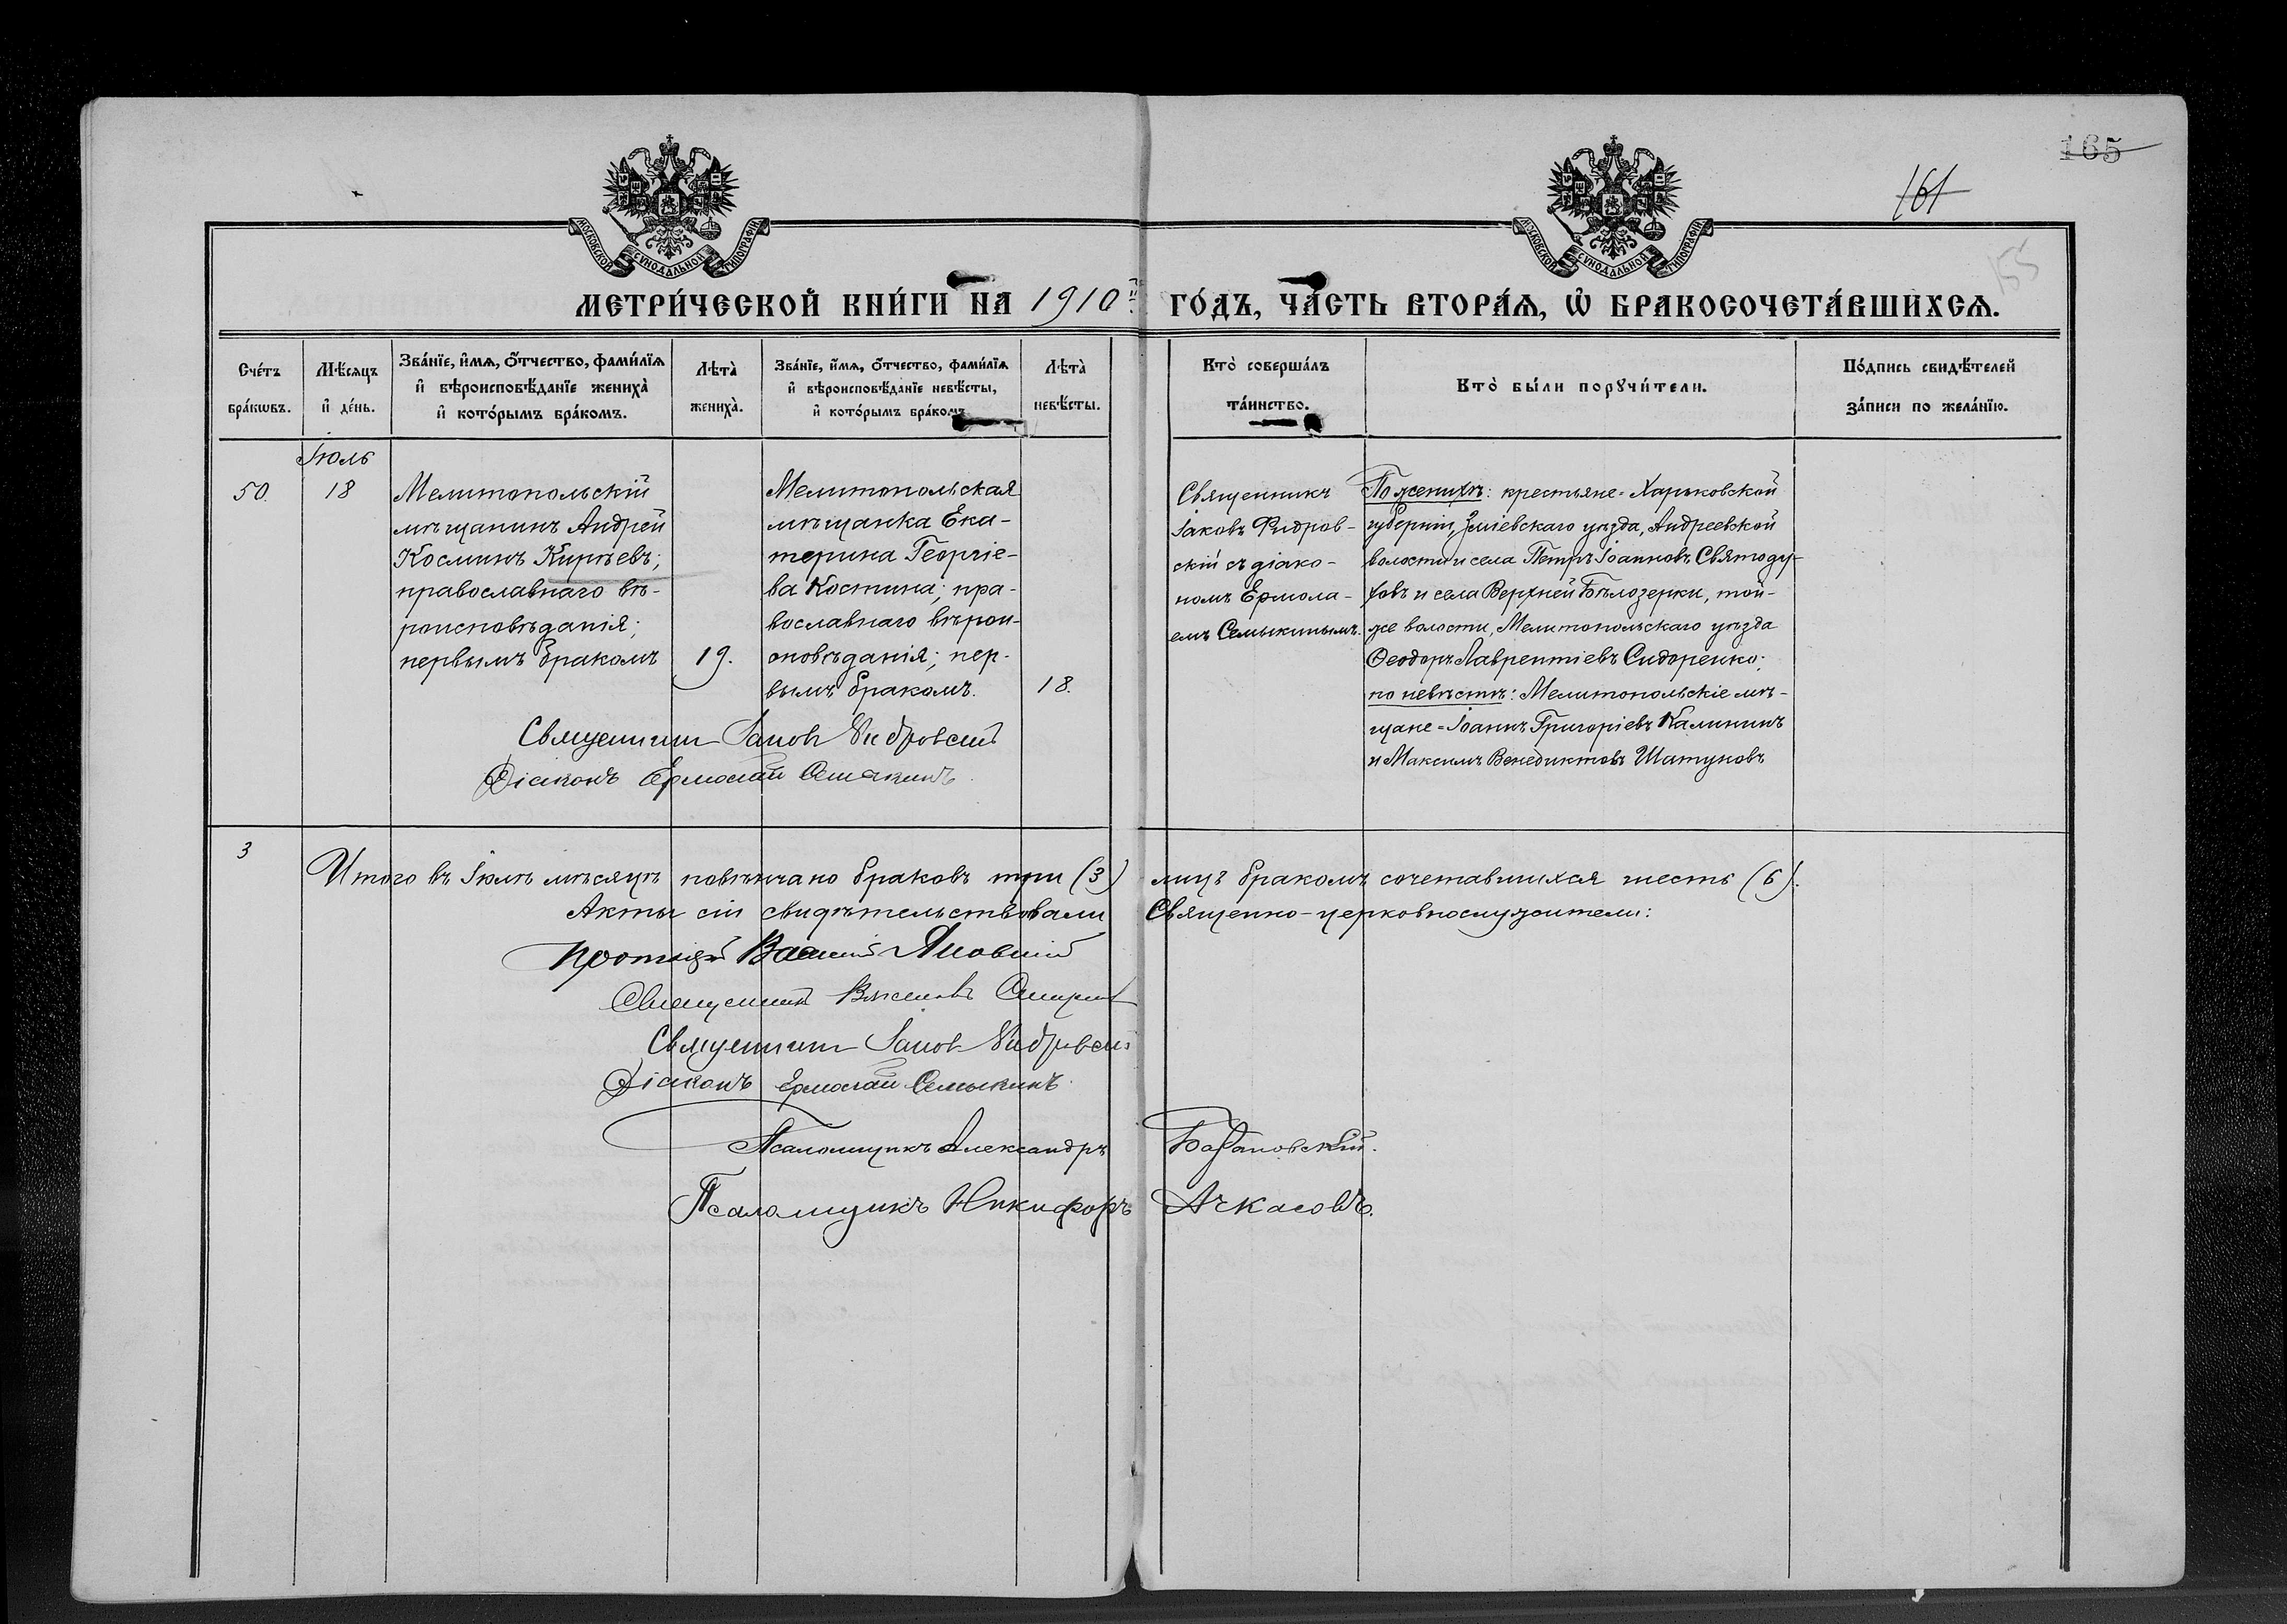 165
161
155
МОСКОВСКОЙ СѴНОДАЛЬНОЙ ТИПОГРАФІИ
МОСКОВСКОЙ СѴНОДАЛЬНОЙ ТИПОГРАФІИ
МЕТРИ́ЧЕСКОЙ КНИ́ГИ НА 1910й ГО́ДЪ, ЧА́СТЬ ВТОРА́Ѧ, Ѡ҆ БРАКОСОЧЕТА́ВШИХСѦ.
Сче́тъ
бра́кѡвъ.
Мѣ́сѧцъ
и҆ де́нь.
Зва́нїе, и҆́мѧ, ѻ҆́тчество, фами́лїѧ
и҆ вѣроисповѣ́данїе жениха̀
и҆ кото́рымъ бра́комъ.
Лѣта̀
жениха̀.
Зва́нїе, и҆́мѧ, ѻ҆́тчество, фами́лїѧ
и҆ вѣроисповѣ́данїе невѣ́сты,
и҆ кото́рымъ бра́комъ.
Лѣта̀
невѣ́сты.
Кто̀ соверша́лъ
та́инство.
Кто̀ бы́ли порꙋчи́тели.
По́дпись свидѣ́телей
за́писи по жела́нїю.
Іюль
50.
18
Мелитопольскій
мѣщанинъ Андрей
Косминъ Кирѣевъ;
православнаго вѣ-
роисповѣданія;
первымъ бракомъ
19.
Мелитопольская
мѣщанка Ека-
терина Георгіе-
ва Костина; пра-
вославнаго вѣрои-
сповѣданія; пер-
вымъ бракомъ.
18.
Священникъ
Іаковъ Фидров-
скій съ діако-
номъ Ермола-
емъ Семыкинымъ.
По женихѣ: крестьяне = Харьковской
губерніи, Зміевскаго уѣзда, Андреевской
волости и села Петръ Іоанновъ Святоду-
ховъ и села Верхней Бѣлозерки, той-
же волости, Мелитопольскаго уѣзда
Ѳеодоръ Лаврентіевъ Сидоренко;
по невѣстѣ: Мелитопольскіе мѣ-
щане = Іоаннъ Григоріевъ Калининъ
и Максимъ Венедиктовъ Шатуновъ
Священникъ Іаковъ Фидровскій
Діаконъ Ермолай Семыкинъ.
3
Итого въ Іюлѣ мѣсяцѣ повѣнчано браковъ три (3) лицъ бракомъ сочетавшихся шесть (6).
Акты сіи свидѣтельствовали Священно-церковнослужители:
Протоіерей Василій Яновскій
Священникъ
Священникъ Іаковъ Фидровскій
Діаконъ Ермолай Семыкинъ.
Псаломщикъ Александръ Барановскій.
Псаломщикъ Никифоръ Ачкасовъ.